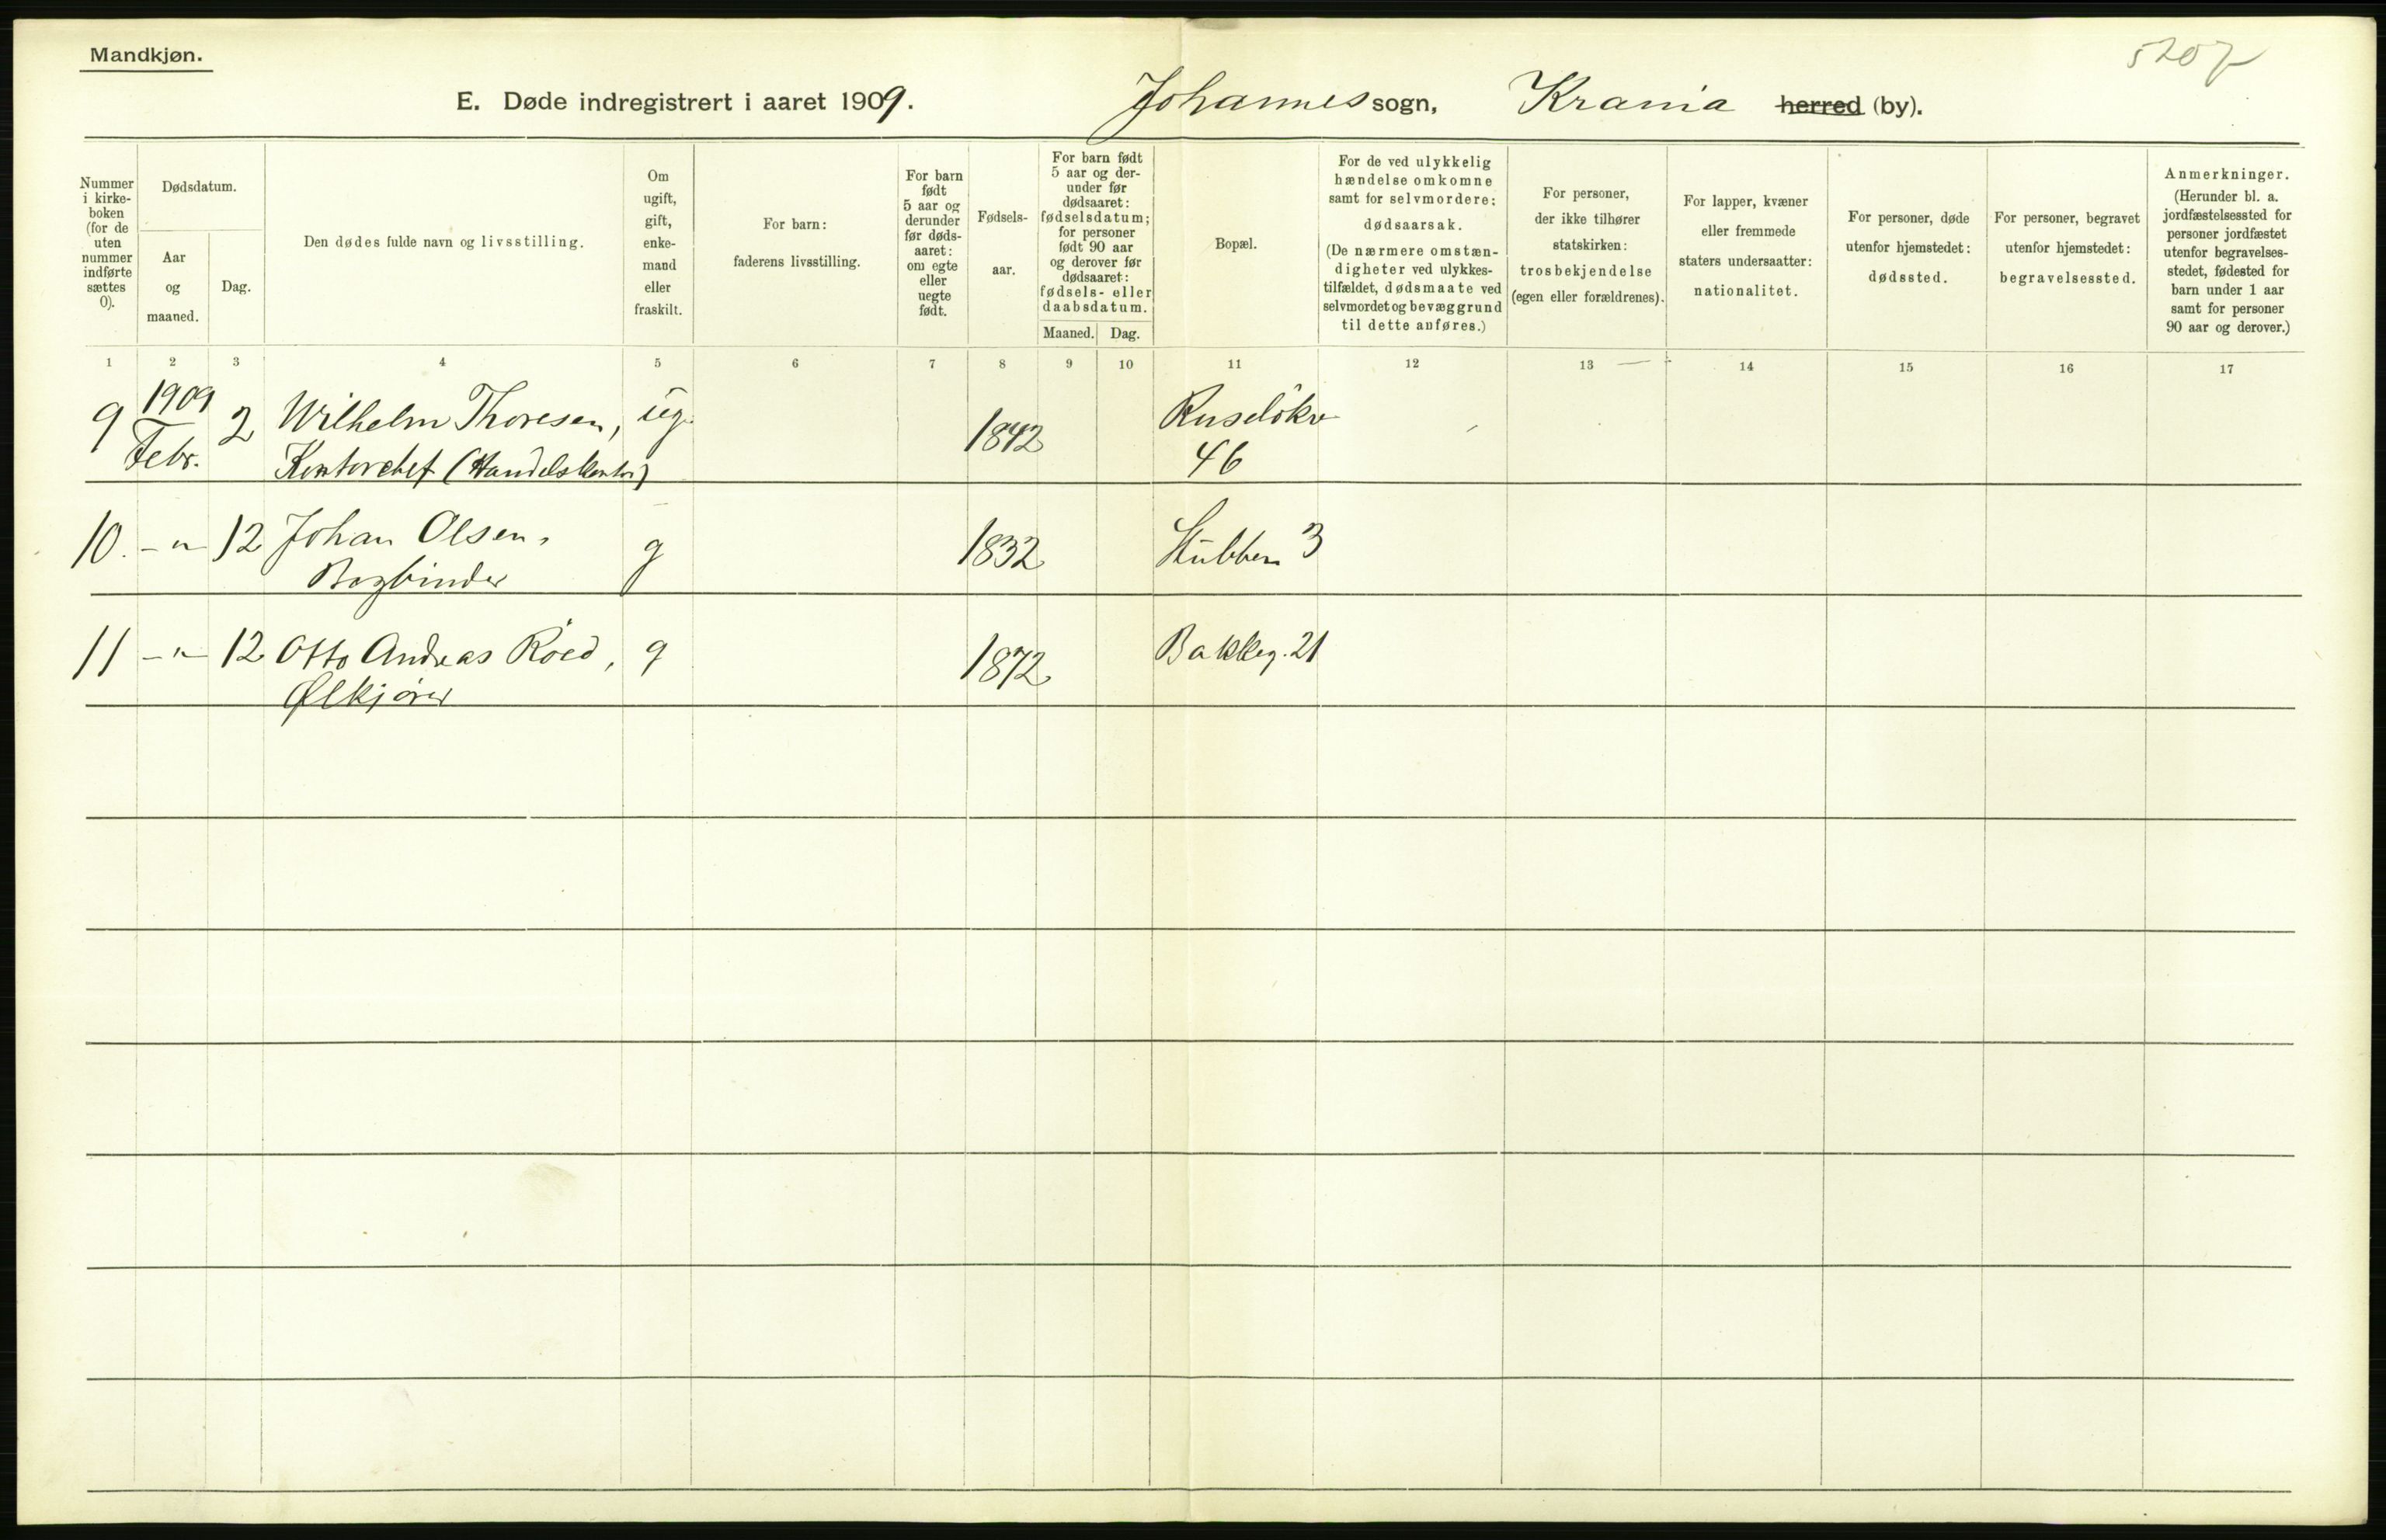 Mandkjøn.
5207
E. Døde indregistrert i aaret 1909. Johannes sogn, Krania herred (by).
Nummer i kirke-boken (for de uten nummer indførte sættes 0).
Dødsdatum.
Aar og maaned.
Dag.
Den dødes fulde navn og livsstilling.
Om ugift, gift, enke-mand eller fraskilt.
For barn: faderens livsstilling.
For barn født 5 aar og derunder før døds-aaret: om egte eller uegte født.
Fødsels-aar.
For barn født 5 aar og der-under før dødsaaret: fødselsdatum; for personer født 90 aar og derover før dødsaaret: fødsels- eller daabsdatum.
Maaned. Dag.
Bopæl.
For de ved ulykkelig hændelse omkomne samt for selvmordere: dødsaarsak. (De nærmere omstæn-digheter ved ulykkes-tilfældet, dødsmaate ved selvmordet og bevæggrund til dette anføres.)
For personer, der ikke tilhører statskirken: trosbekjendelse (egen eller forældrenes).
For lapper, kvæner eller fremmede staters undersaatter: nationalitet.
For personer, døde utenfor hjemstedet: dødssted.
For personer, begravet utenfor hjemstedet: begravelsessted.
Anmerkninger. (Herunder bl. a. jordfæstelsessted for personer jordfæstet utenfor begravelses-stedet, fødested for barn under 1 aar samt for personer 90 aar og derover.)
1 2 3 4 5 6 7 8 9 10 11 12 13 14 15 16 17
9 1909 Febr. 2 Wilhelm Thoresen, ug. 1842 Ruseløkv 46
Kontorchef (Handelskontor)
10. -"- 12 Johan Olsen, g 1832 Stubben 3
Bogbinder
11 -"- 12 Otto Andreas Röed, g 1872 Bakkeg. 21
Ølkjører